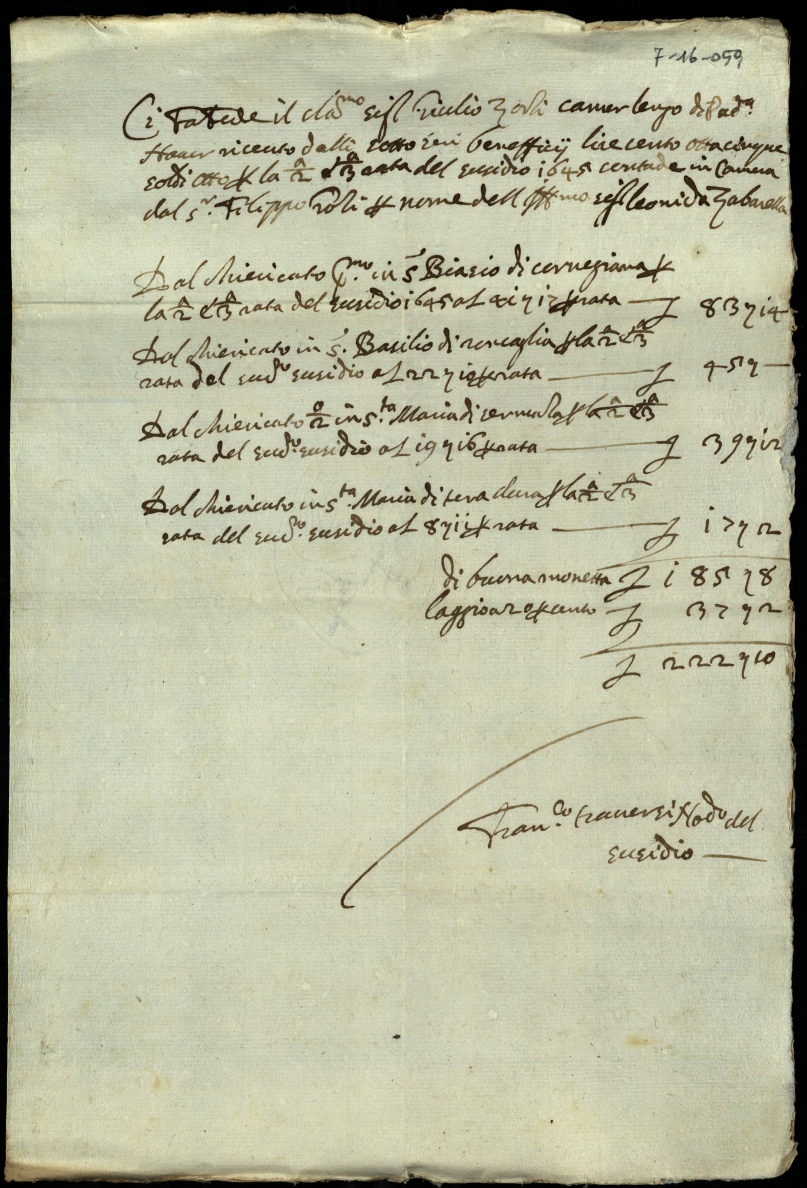 7-16-059
Ci Fa Fede il cla.mo sig.r Giulio Zorzi camerlengo di Pad.a
Hauer riceuto dalli sotto s.ni beneffitij lire cento otta cinque
soldi otto p la 2a et 3a rata del susidio 1645 contade in Camera
dal s.r Filippo p nome dell Ill.mo sig.r leonida Zabarella
Dal chiericato p.mo in S. Biasio di cornegiana p
la 2a et 3a rata del susidio 1645 a L 41 γ 17 p rata — L 83 γ 14
Dal chiericato in S. Basilio di roncaglia p la 2a et 3a
rata del sud.o susidio a L 22 γ 10 p rata — L 45 γ —
Dal chiericato 2o in S.ta Maria di p la 2a et 3a
rata del sud.o susidio a L 19 γ 16 p rata — L 39 γ 12
Dal chiericato in S.ta Maria di tera dura p la 2a et 3a
rata del sud.o susidio a L 8 γ 11 p rata — L 17 γ 2
di buona monetta L 185 γ 8
laggio a 20 p cento L 37 γ 2
L 222 γ 10
Fran.co trauersi Nod.o del
susidio —